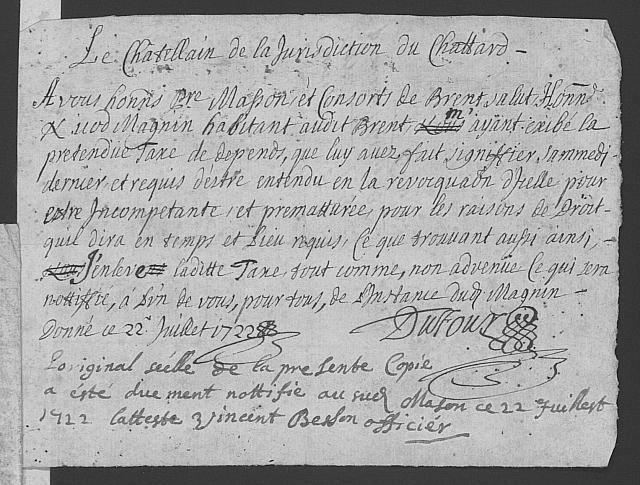 Le Chatellain de la Jurisdiction du Chattard -
A vous honns Pre Masson et Consorts de Brent salut, Honn
Magnin habitant audit Brent m' ayant exibé la
pretendue Taxe de depends, que luy avez fait signiffier sammedi
dernier et requis destre entendu en la revocquaon d'Jcelle pour
estre Jncompetante, et prematturée, pour les raisons de Droit
quil dira en temps et Lieu requis, Ce que trouvant aussi ainsi, -
J'enleve laditte Taxe, tout comme, non advenüe Ce qui sera
nottiffié, à L'un de vous, pour tous, de L'instance dud Magnin -
Donné ce 22e Juillet 1722 Dufour
Loriginal séélle de la presente Copie
a este duement nottifie au sud Mason ce 22 Juillest
1722 Latteste Vincent Besson officier